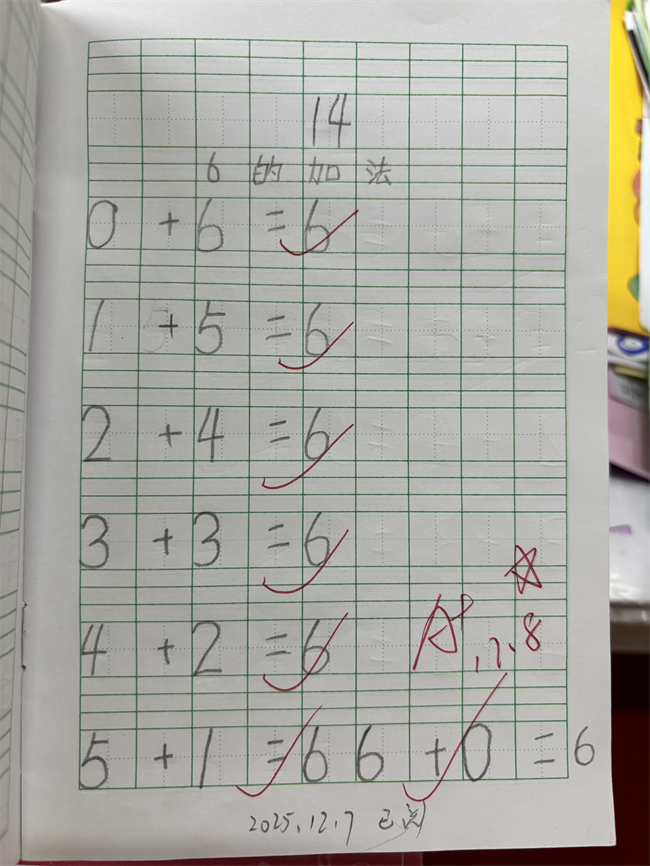 14
6 的 加 法
0 + 6 = 6
1 + 5 = 6
2 + 4 = 6
3 + 3 = 6
4 + 2 = 6
A+
.7.8
5 + 1 = 6 6 + 0 = 6
2025.12.7 已阅